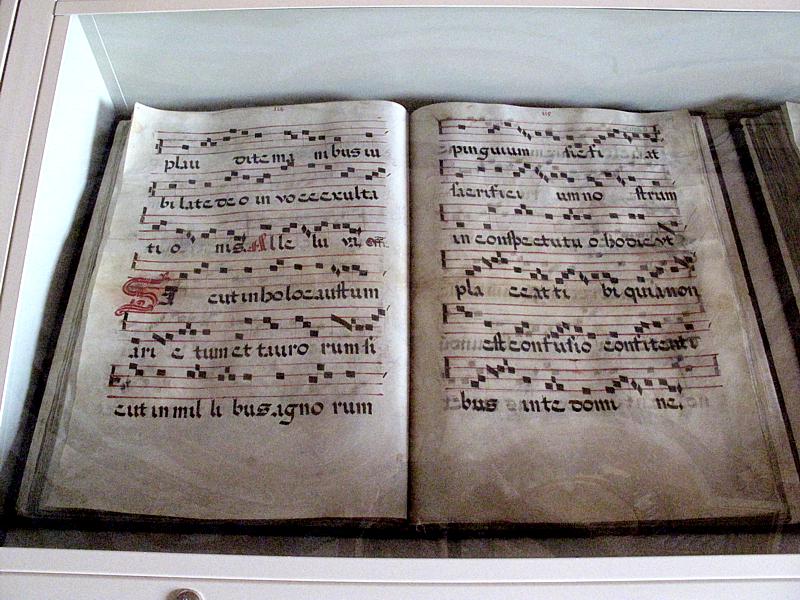 114
plau dite ma nibus iu
bilate deo in voce exulta
tio nis. Alle lu ya. off.
Si cut in holocaustum
ari e tum et tauro rum si
cut in mil li bus agno rum
115
pinguium si e fi at
sacrifici um no strum
in conspectu tu o hodie vt
pla ceat ti bi quia non
est confusio confitenti
bus in te domi ne.